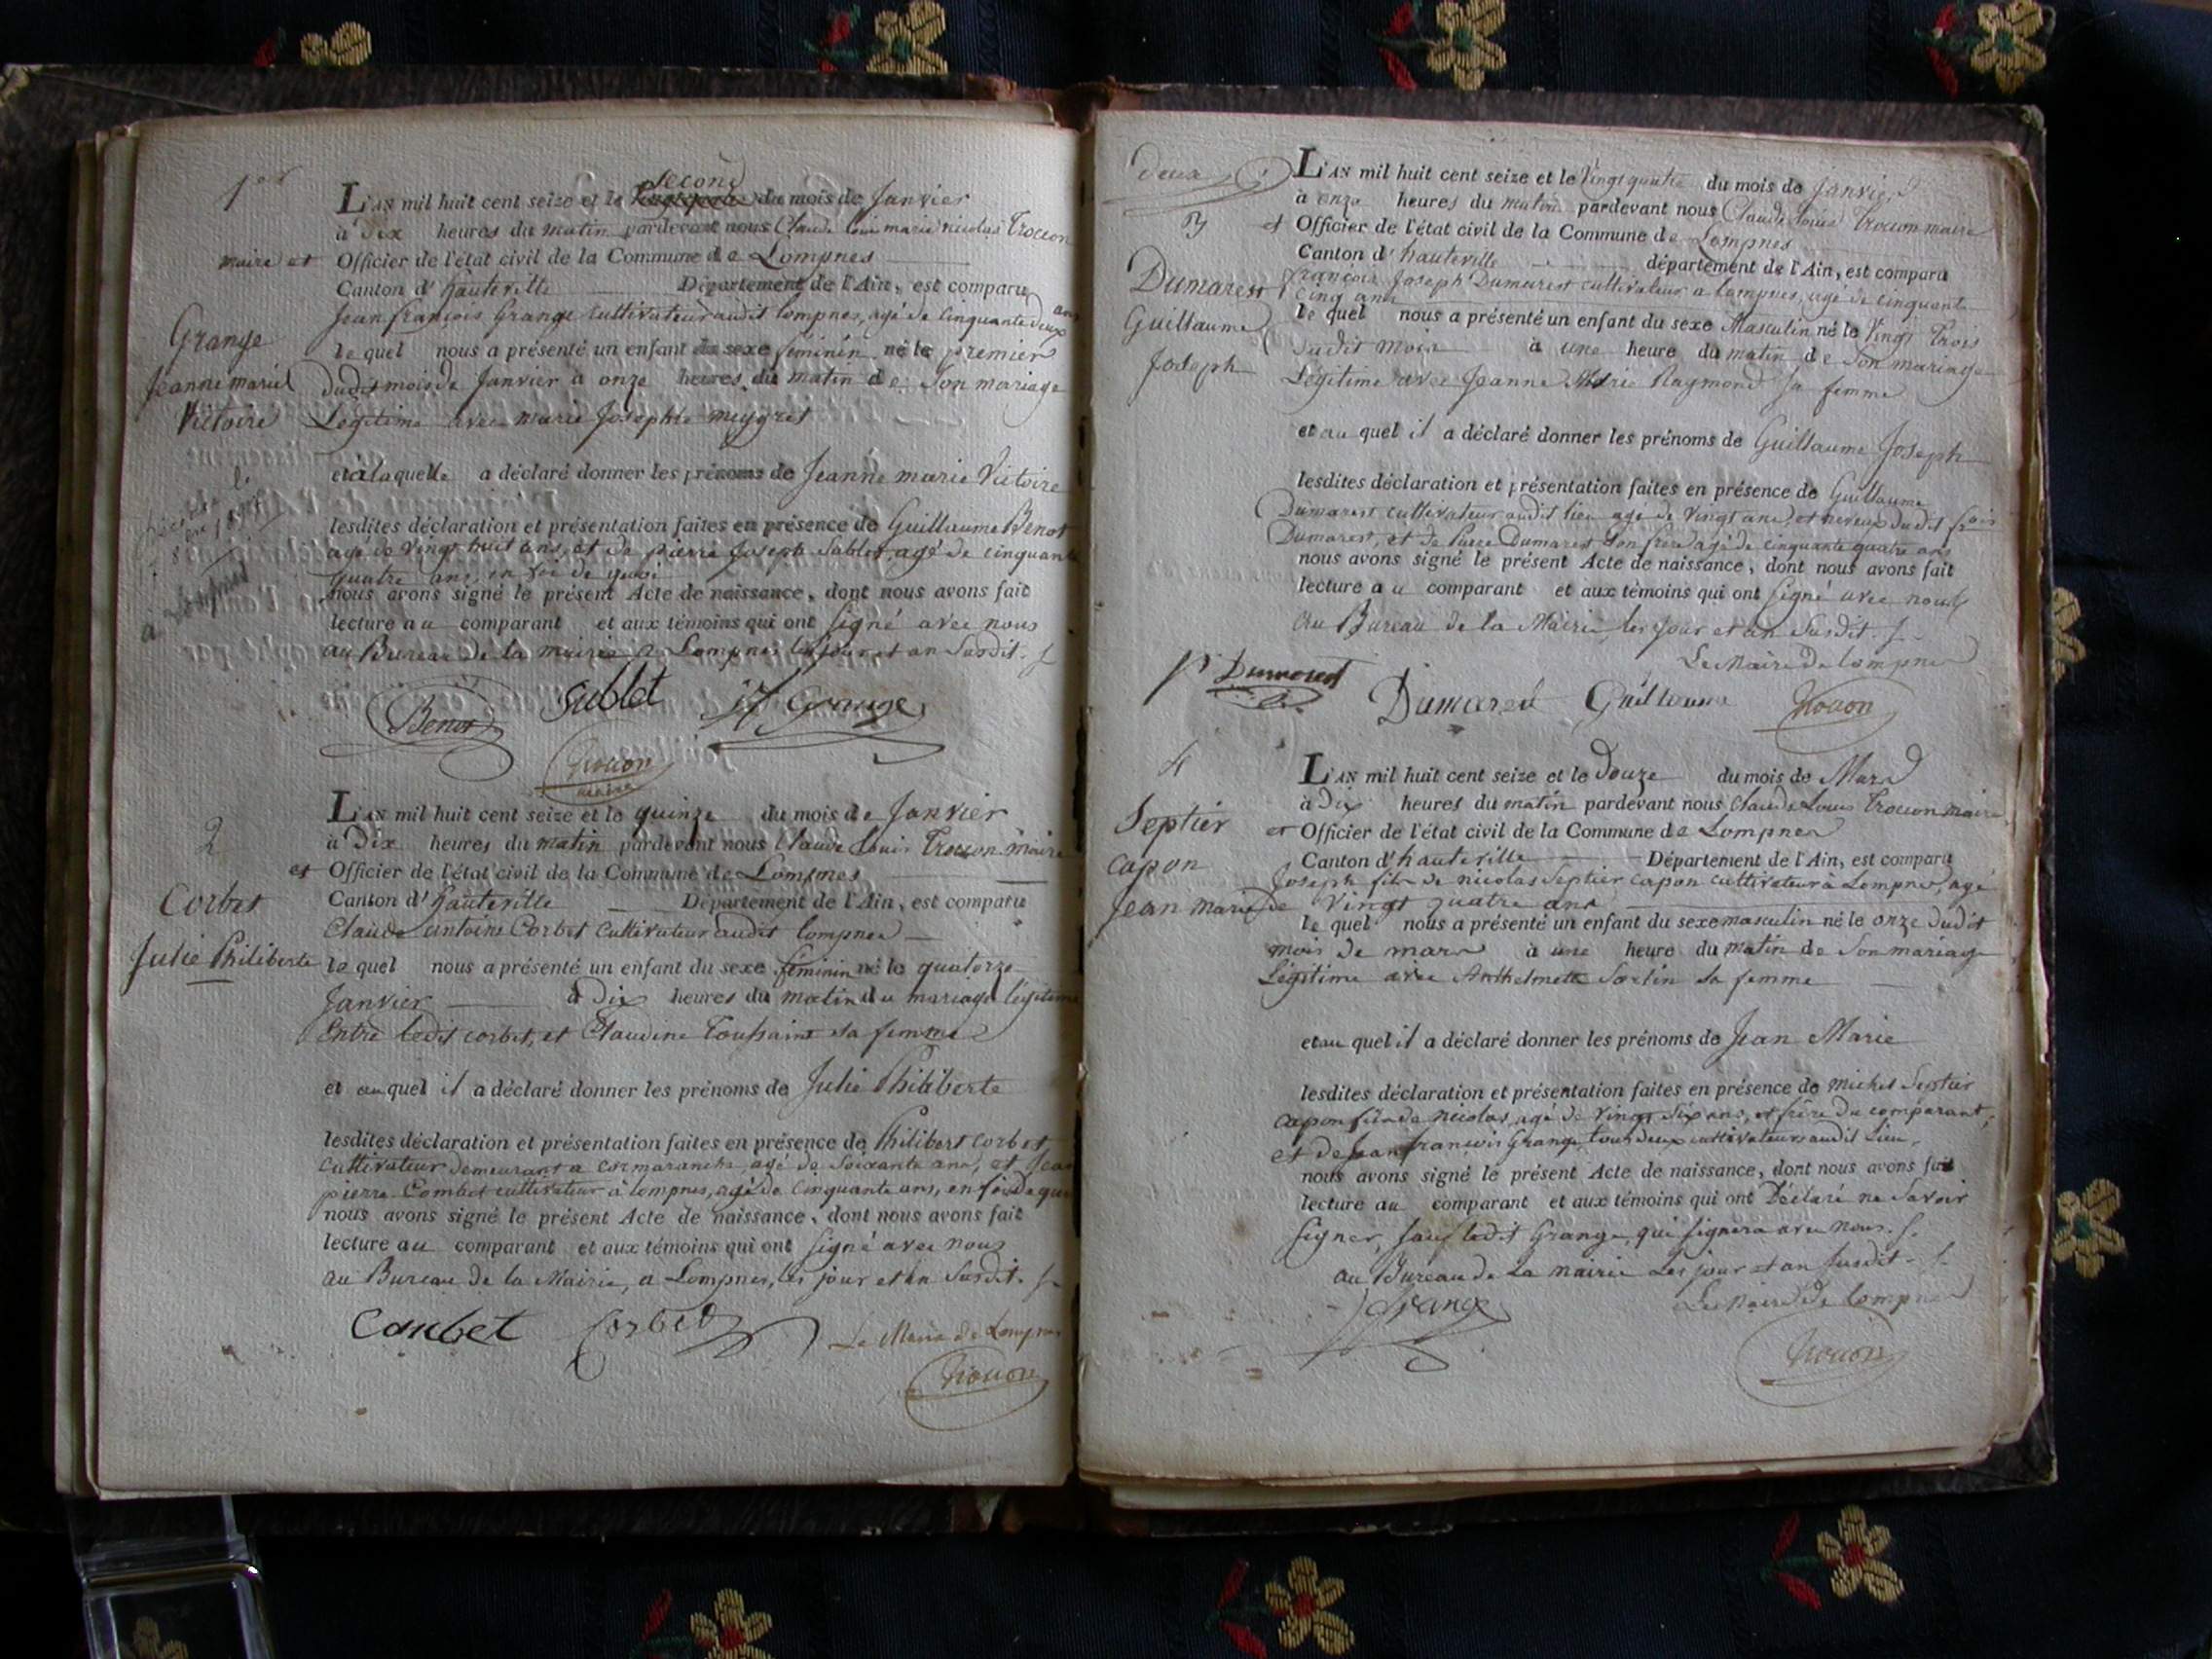 1er
L'AN mil huit cent seize et le second du mois de Janvier
à Dix heures du matin pardevant nous Claude Louis marie nicolas Trocon
maire et Officier de l'état civil de la Commune de Lompnes
Canton d'hauteville Département de l'Ain, est comparu
Jean françois Grange cultivateur audit lompnes, agé de cinquante deux ans
Grange
Jeanne marie
Victoire
le quel nous a présenté un enfant du sexe féminin né le premier
dudit mois de Janvier à onze heures du matin de Son mariage
Légitime avec marie Josephte meygret
et a laquelle a déclaré donner les prénoms de Jeanne marie Victoire
lesdites déclaration et présentation faites en présence de Guillaume Benot
agé de vingt huit ans, et de pierre Joseph Sublet, agé de cinquante
quatre ans, en foi de quoi
nous avons signé le présent Acte de naissance, dont nous avons fait
lecture au comparant et aux témoins qui ont signé avec nous
au Bureau de la mairie a Lompnes les jour et an Susdit.
Benot Sublet jf Grange
Trocon
2
Corbet
Julie Philiberte
L'AN mil huit cent seize et le quinze du mois de Janvier
à Dix heures du matin pardevant nous Claude Louis Trocon maire
et Officier de l'état civil de la Commune de Lompnes
Canton d'hauteville Département de l'Ain, est comparu
Claude antoine Corbet cultivateur audit lompnes
le quel nous a présenté un enfant du sexe féminin né le quatorze
Janvier à Dix heures du matin du mariage légitime
Entre ledit corbet, et Claudine Toussaint sa femme
et auquel il a déclaré donner les prénoms de Julie Philiberte
lesdites déclaration et présentation faites en présence de Philibert Corbet
cultivateur demeurant a cormaranche, agé de Soixante ans, et Jean
pierre Combet cultivateur à lompnes, agé de cinquante ans, en foi de quoi
nous avons signé le présent Acte de naissance, dont nous avons fait
lecture au comparant et aux témoins qui ont signé avec nous
au Bureau de la Mairie, a Lompnes, les jour et an Susdit.
Conbet Corbet Le Maire de Lompnes
Trocon
deux
3
Dumarest
Guillaume
Joseph
L'AN mil huit cent seize et le Vingt quatre du mois de Janvier
à onze heures du matin pardevant nous Claude Louis Trocon maire
et Officier de l'état civil de la Commune de Lompnes
Canton d'hauteville département de l'Ain, est comparu
françois Joseph Dumarest cultivateur a lompnes, agé de cinquante
cinq ans
le quel nous a présenté un enfant du sexe Masculin né le Vingt Trois
dudit mois à une heure du matin de Son mariage
Légitime avec Jeanne Marie Raymond sa femme
et au quel il a déclaré donner les prénoms de Guillaume Joseph
lesdites déclaration et présentation faites en présence de Guillaume
Dumarest cultivateur audit lieu agé de vingt ans, et neveu dudit fois
Dumarest, et de Pierre Dumarest Son frère agé de cinquante quatre ans
nous avons signé le présent Acte de naissance, dont nous avons fait
lecture au comparant et aux témoins qui ont signé avec nous
au Bureau de la Mairie, les jour et an Susdit.
Le Maire de lompnes
p Dumarest Dumarest Guillaume Trocon
4
Septier
capon
Jean marie
L'AN mil huit cent seize et le Douze du mois de Mars
à Dix heures du matin pardevant nous Claude Louis Trocon maire
et Officier de l'état civil de la Commune de Lompnes
Canton d'hauteville Département de l'Ain, est comparu
Joseph fils de nicolas Septier capon cultivateur à Lompnes, agé
de Vingt quatre ans
le quel nous a présenté un enfant du sexe masculin né le onze dudit
mois de mars à une heure du matin de Son mariage
Légitime avec Anthelmette Sortin sa femme
et au quel il a déclaré donner les prénoms de Jean Marie
lesdites déclaration et présentation faites en présence de michel Septier
capon fils de nicolas, agé de vingt six ans, et frère du comparant,
et de Jean françois Grange, tous deux cultivateurs audit lieu,
nous avons signé le présent Acte de naissance, dont nous avons fait
lecture au comparant et aux témoins qui ont Déclaré ne Savoir
signer, sauf ledit Grange, qui signera avec nous.
au Bureau de la mairie les jour et an susdit
Le Maire de lompnes
Grange
Trocon